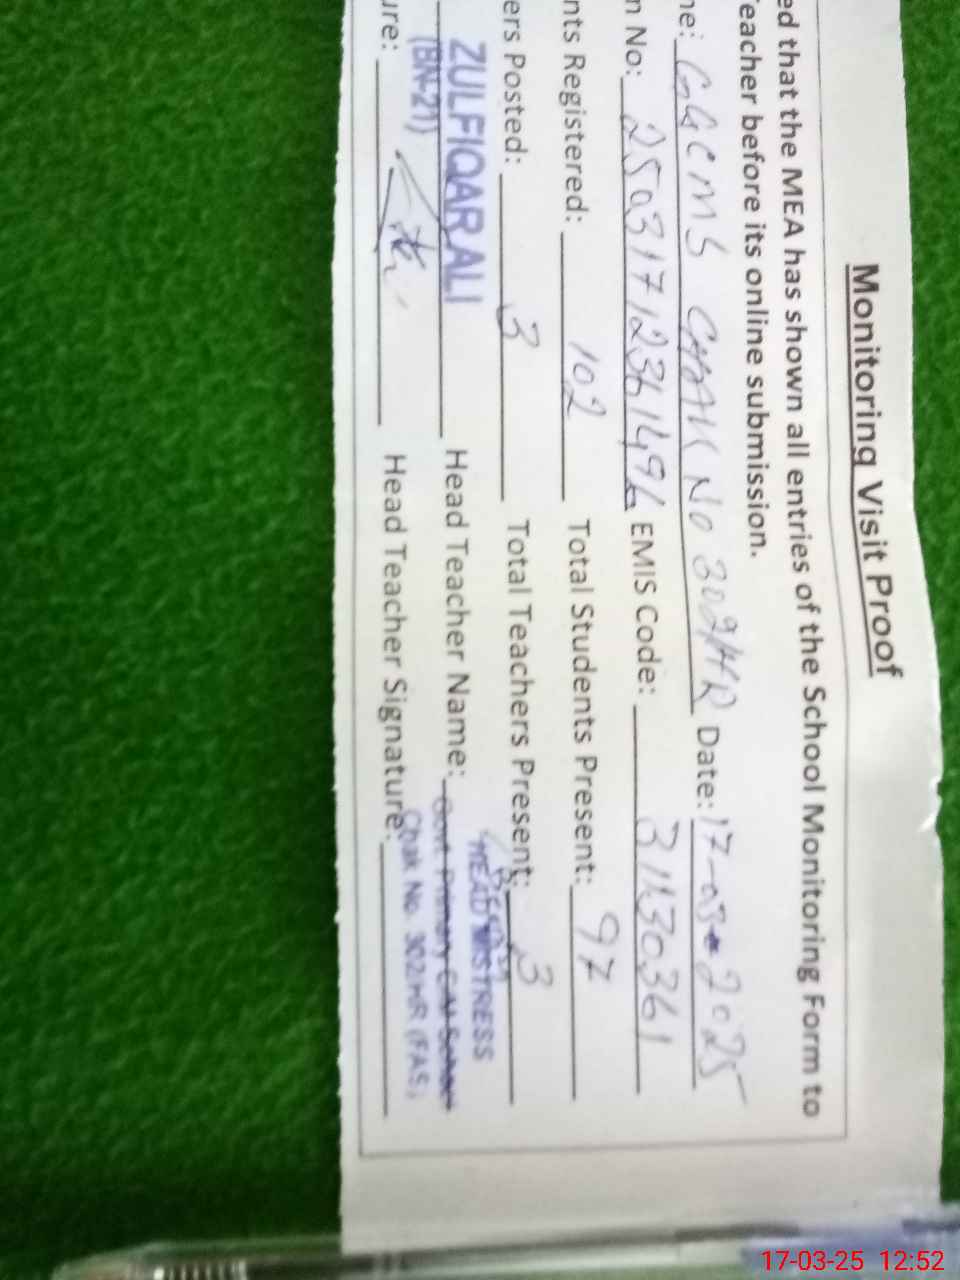 Monitoring Visit Proof
ed that the MEA has shown all entries of the School Monitoring Form to
eacher before its online submission.
me: GGCMS CHAK No 302/HR Date: 17-03-2025
n No: EMIS Code: 31130361
nts Registered: 102 Total Students Present: 97
ers Posted: 3 Total Teachers Present: 3
ZULFIQAR ALI Head Teacher Name: HEAD MISTRESS
(BN-21) Govt. Primary School
ure: Head Teacher Signature: Chak No. 302/HR (F.A.S)
17-03-25 12:52